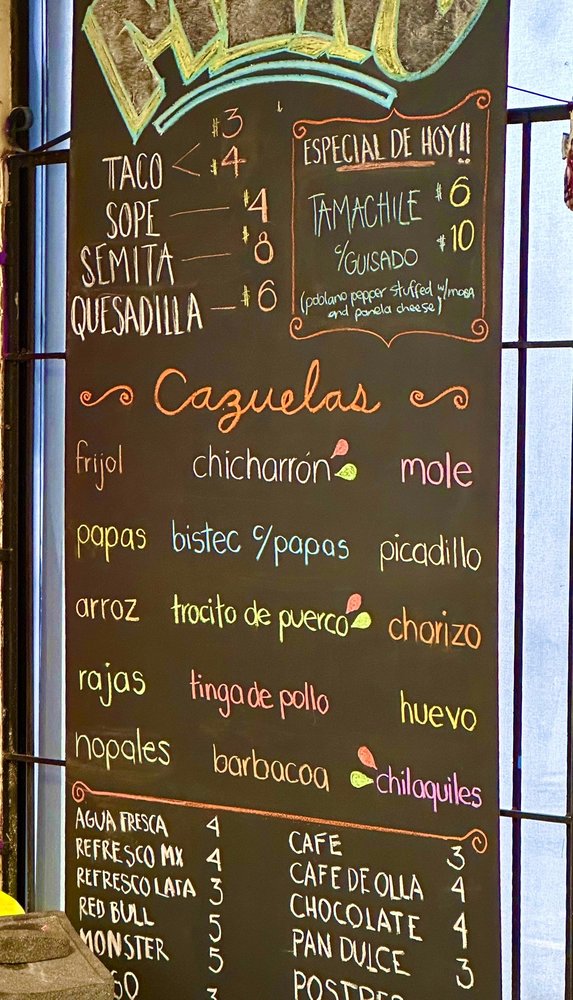 TACO $3
$4
SOPE $4
SEMITA $8
QUESADILLA $6
ESPECIAL DE HOY!!
TAMACHILE $6
c/GUISADO $10
(poblano pepper stuffed w/masa
and panela cheese)
Cazuelas
frijol chicharrón mole
papas bistec c/papas picadillo
arroz trocito de puerco chorizo
rajas tinga de pollo huevo
nopales barbacoa chilaquiles
AGUA FRESCA 4
REFRESCO MX 4
REFRESCO LATA 3
RED BULL 5
MONSTER 5
3
CAFE 3
CAFE DE OLLA 4
CHOCOLATE 4
PAN DULCE 3
POSTRES